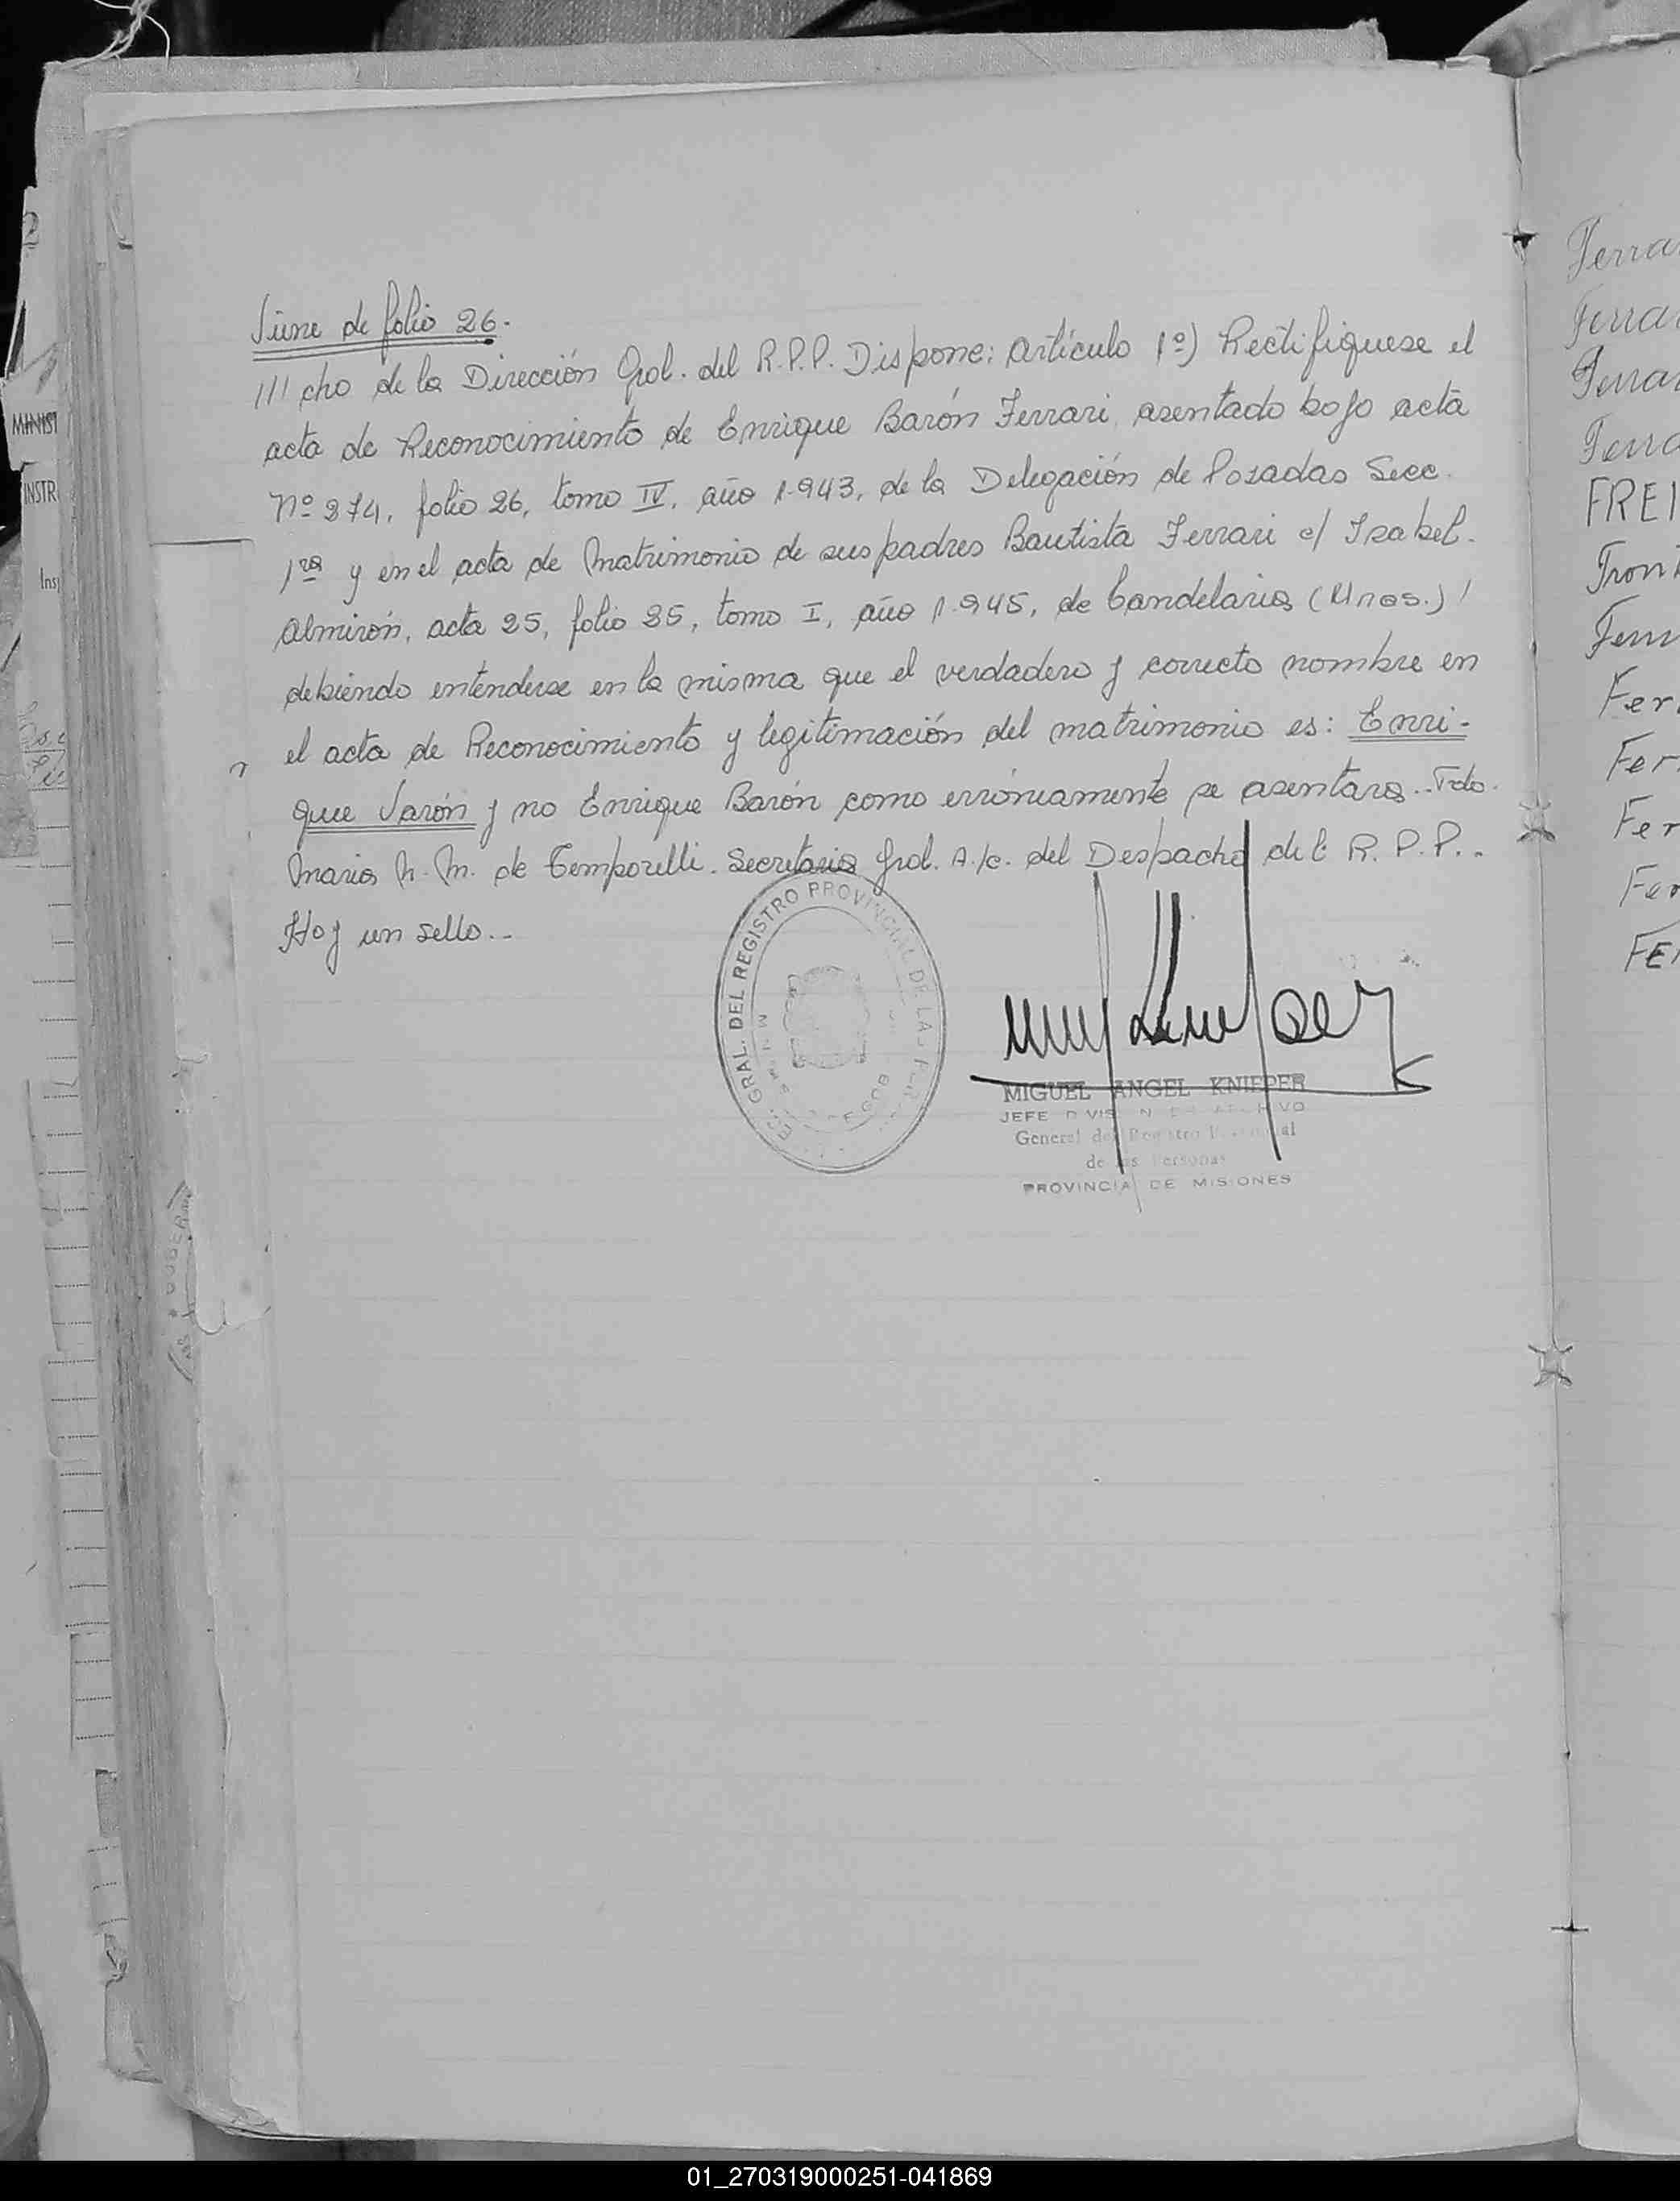 Viene de folio 26.
/// cho de la Dirección Gral. del R.P.P. Dispone: Artículo 1º) Rectifiquese el
acta de Reconocimiento de Enrique Barón Ferrari, asentado bajo acta
Nº 274, folio 26, tomo IV, año 1.943, de la Delegación de Posadas Secc.
1ra y en el acta de Matrimonio de sus padres Bautista Ferrari c/ Isabel
Almirón, acta 25, folio 25, tomo I, año 1.945, de Candelaria (Mnes.) /
debiendo entenderse en la misma que el verdadero y correcto nombre en
el acta de Reconocimiento y legitimación del matrimonio es: Enri-
que Varón y no Enrique Barón como erróniamente se asentara.. Fdo.
Maria N. M. de Temporelli. Secretaria Gral. A/c. del Despacho del R. P. P..
Hoy un sello..
GRAL. DEL REGISTRO PROVINCIAL DE LAS PER
MIGUEL ANGEL KNIEPER
JEFE DIVISION DE ARCHIVO
General del Registro Provincial
de las Personas
PROVINCIA DE MISIONES
MINIST
INSTR
Ins
Ferra
Ferrar
Ferrar
Ferra
FREI
Front
Fer
Fer
Fer
Fer
FE
01_270319000251-041869